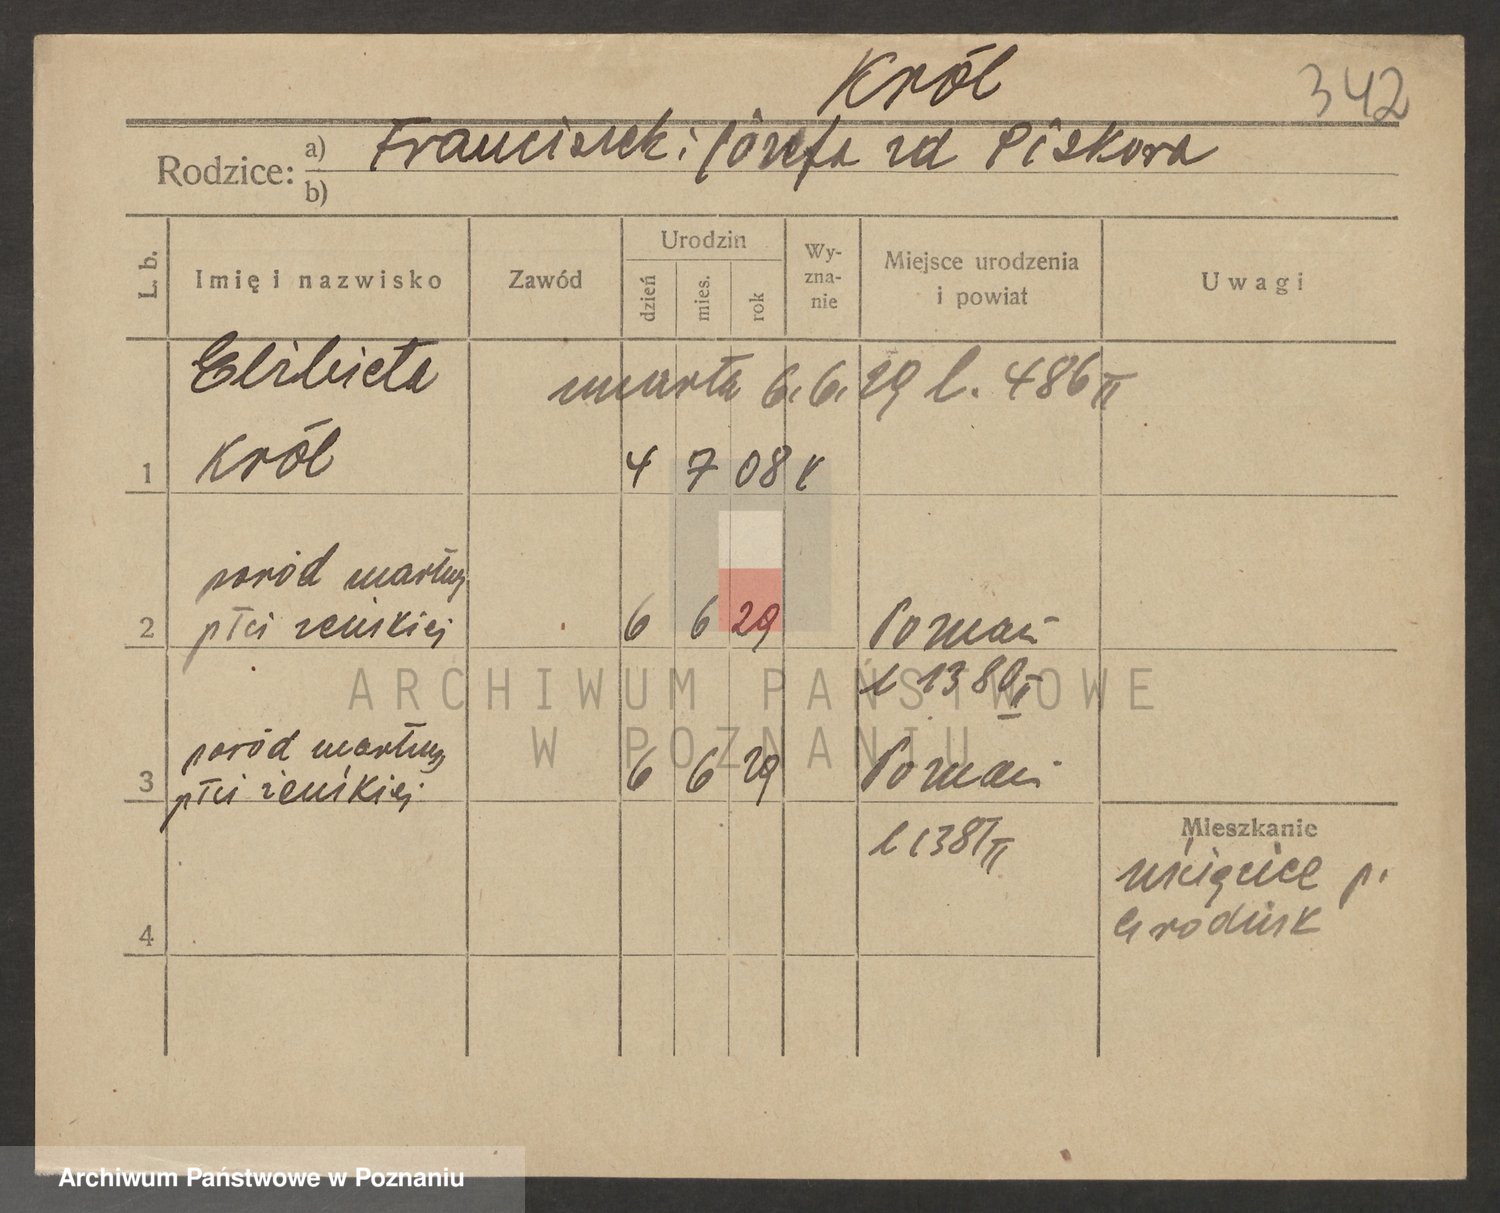 Król
342
Rodzice:
a) Franciszek i Józefa zd Piskora
b)
L. b.
Imię i nazwisko
Zawód
Urodzin
dzień
mies.
rok
Wy-
zna-
nie
Miejsce urodzenia
i powiat
Uwagi
Elżbieta
zmarła 6.6.29 l. 486 II
1 Król 4 7 08 k
poród martwy
2 płci żeńskiej 6 6 29 Poznań
l 1380 II
poród martwy
3 płci żeńskiej 6 6 29 Poznań
l 1381 II
4
Mieszkanie
p.
Grodzisk
ARCHIWUM PAŃSTWOWE
W POZNANIU
Archiwum Państwowe w Poznaniu